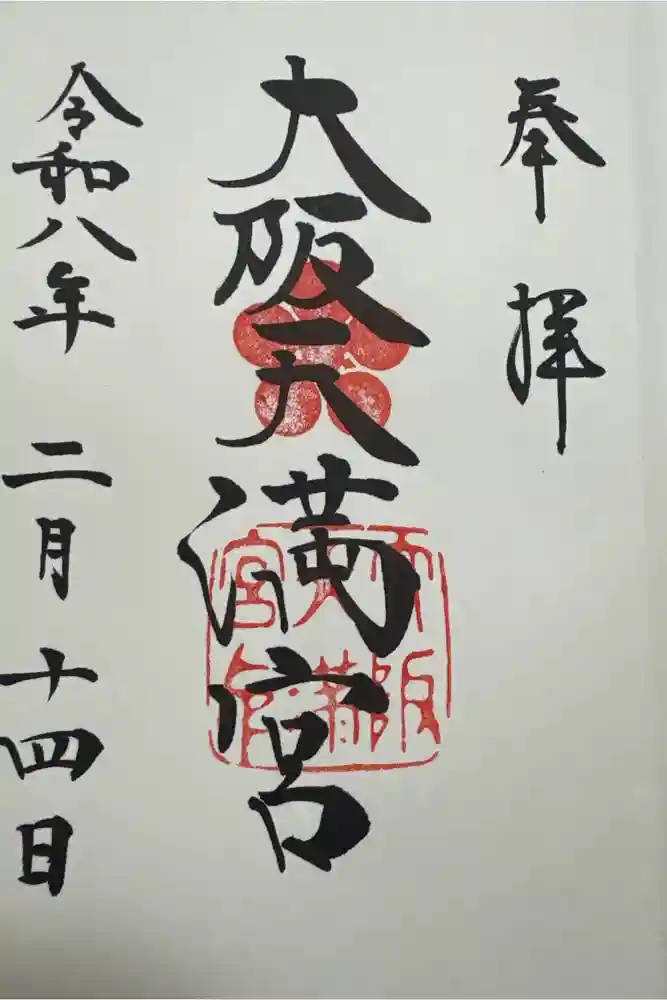 奉拝
大阪天満宮
大阪天満宮
令和八年二月十四日